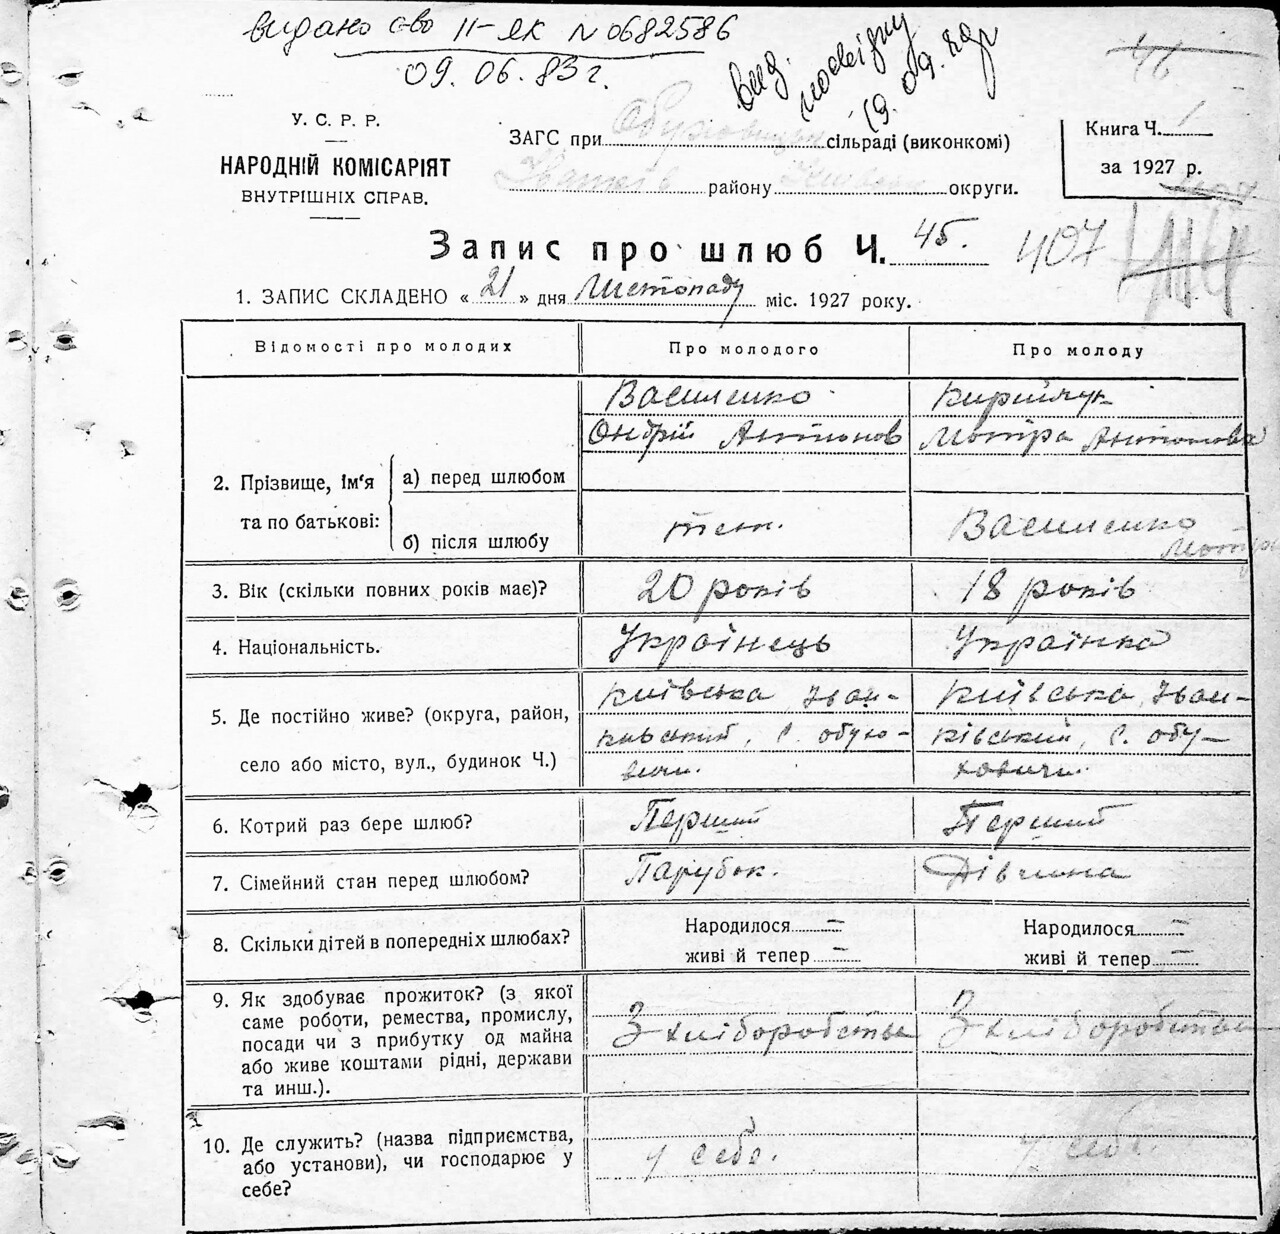 видано с-во II-ЯК N 0682586
09.06.83 г.
вид.
19.09.
46
У. С. Р. Р.
НАРОДНІЙ КОМІСАРІЯТ
ВНУТРІШНІХ СПРАВ.
ЗАГС при Обуховицьк сільраді (виконкомі)
Іванків району Київськ округи.
Книга Ч. 1
за 1927 р.
Запис про шлюб Ч. 45.
407
1. ЗАПИС СКЛАДЕНО « 21 » дня Листопаду міс. 1927 року.
Відомості про молодих Про молодого Про молоду
Василенко Кирийчук
Ондрій Антонов Мотря Антонова
2. Прізвище, ім‘я а) перед шлюбом
та по батькові: б) після шлюбу
теж. Василенко
Мотря
3. Вік (скільки повних років має)? 20 років 18 років
4. Національність. Українець Українка
5. Де постійно живе? (округа, район, Київська, Іван- Київська, Іван-
село або місто, вул., будинок Ч.) ківський, с. Обухо- ківський, с. Обу-
вичи. ховичи.
6. Котрий раз бере шлюб? Перший Перший
7. Сімейний стан перед шлюбом? Парубок. Дівчина
8. Скільки дітей в попередніх шлюбах? Народилося – Народилося –
живі й тепер – живі й тепер –
9. Як здобуває прожиток? (з якої
саме роботи, ремества, промислу,
посади чи з прибутку од майна
або живе коштами рідні, держави
та инш.).
З хліборобства З хліборобства
10. Де служить? (назва підприємства,
або установи), чи господарює у
себе?
у себе. у себе.